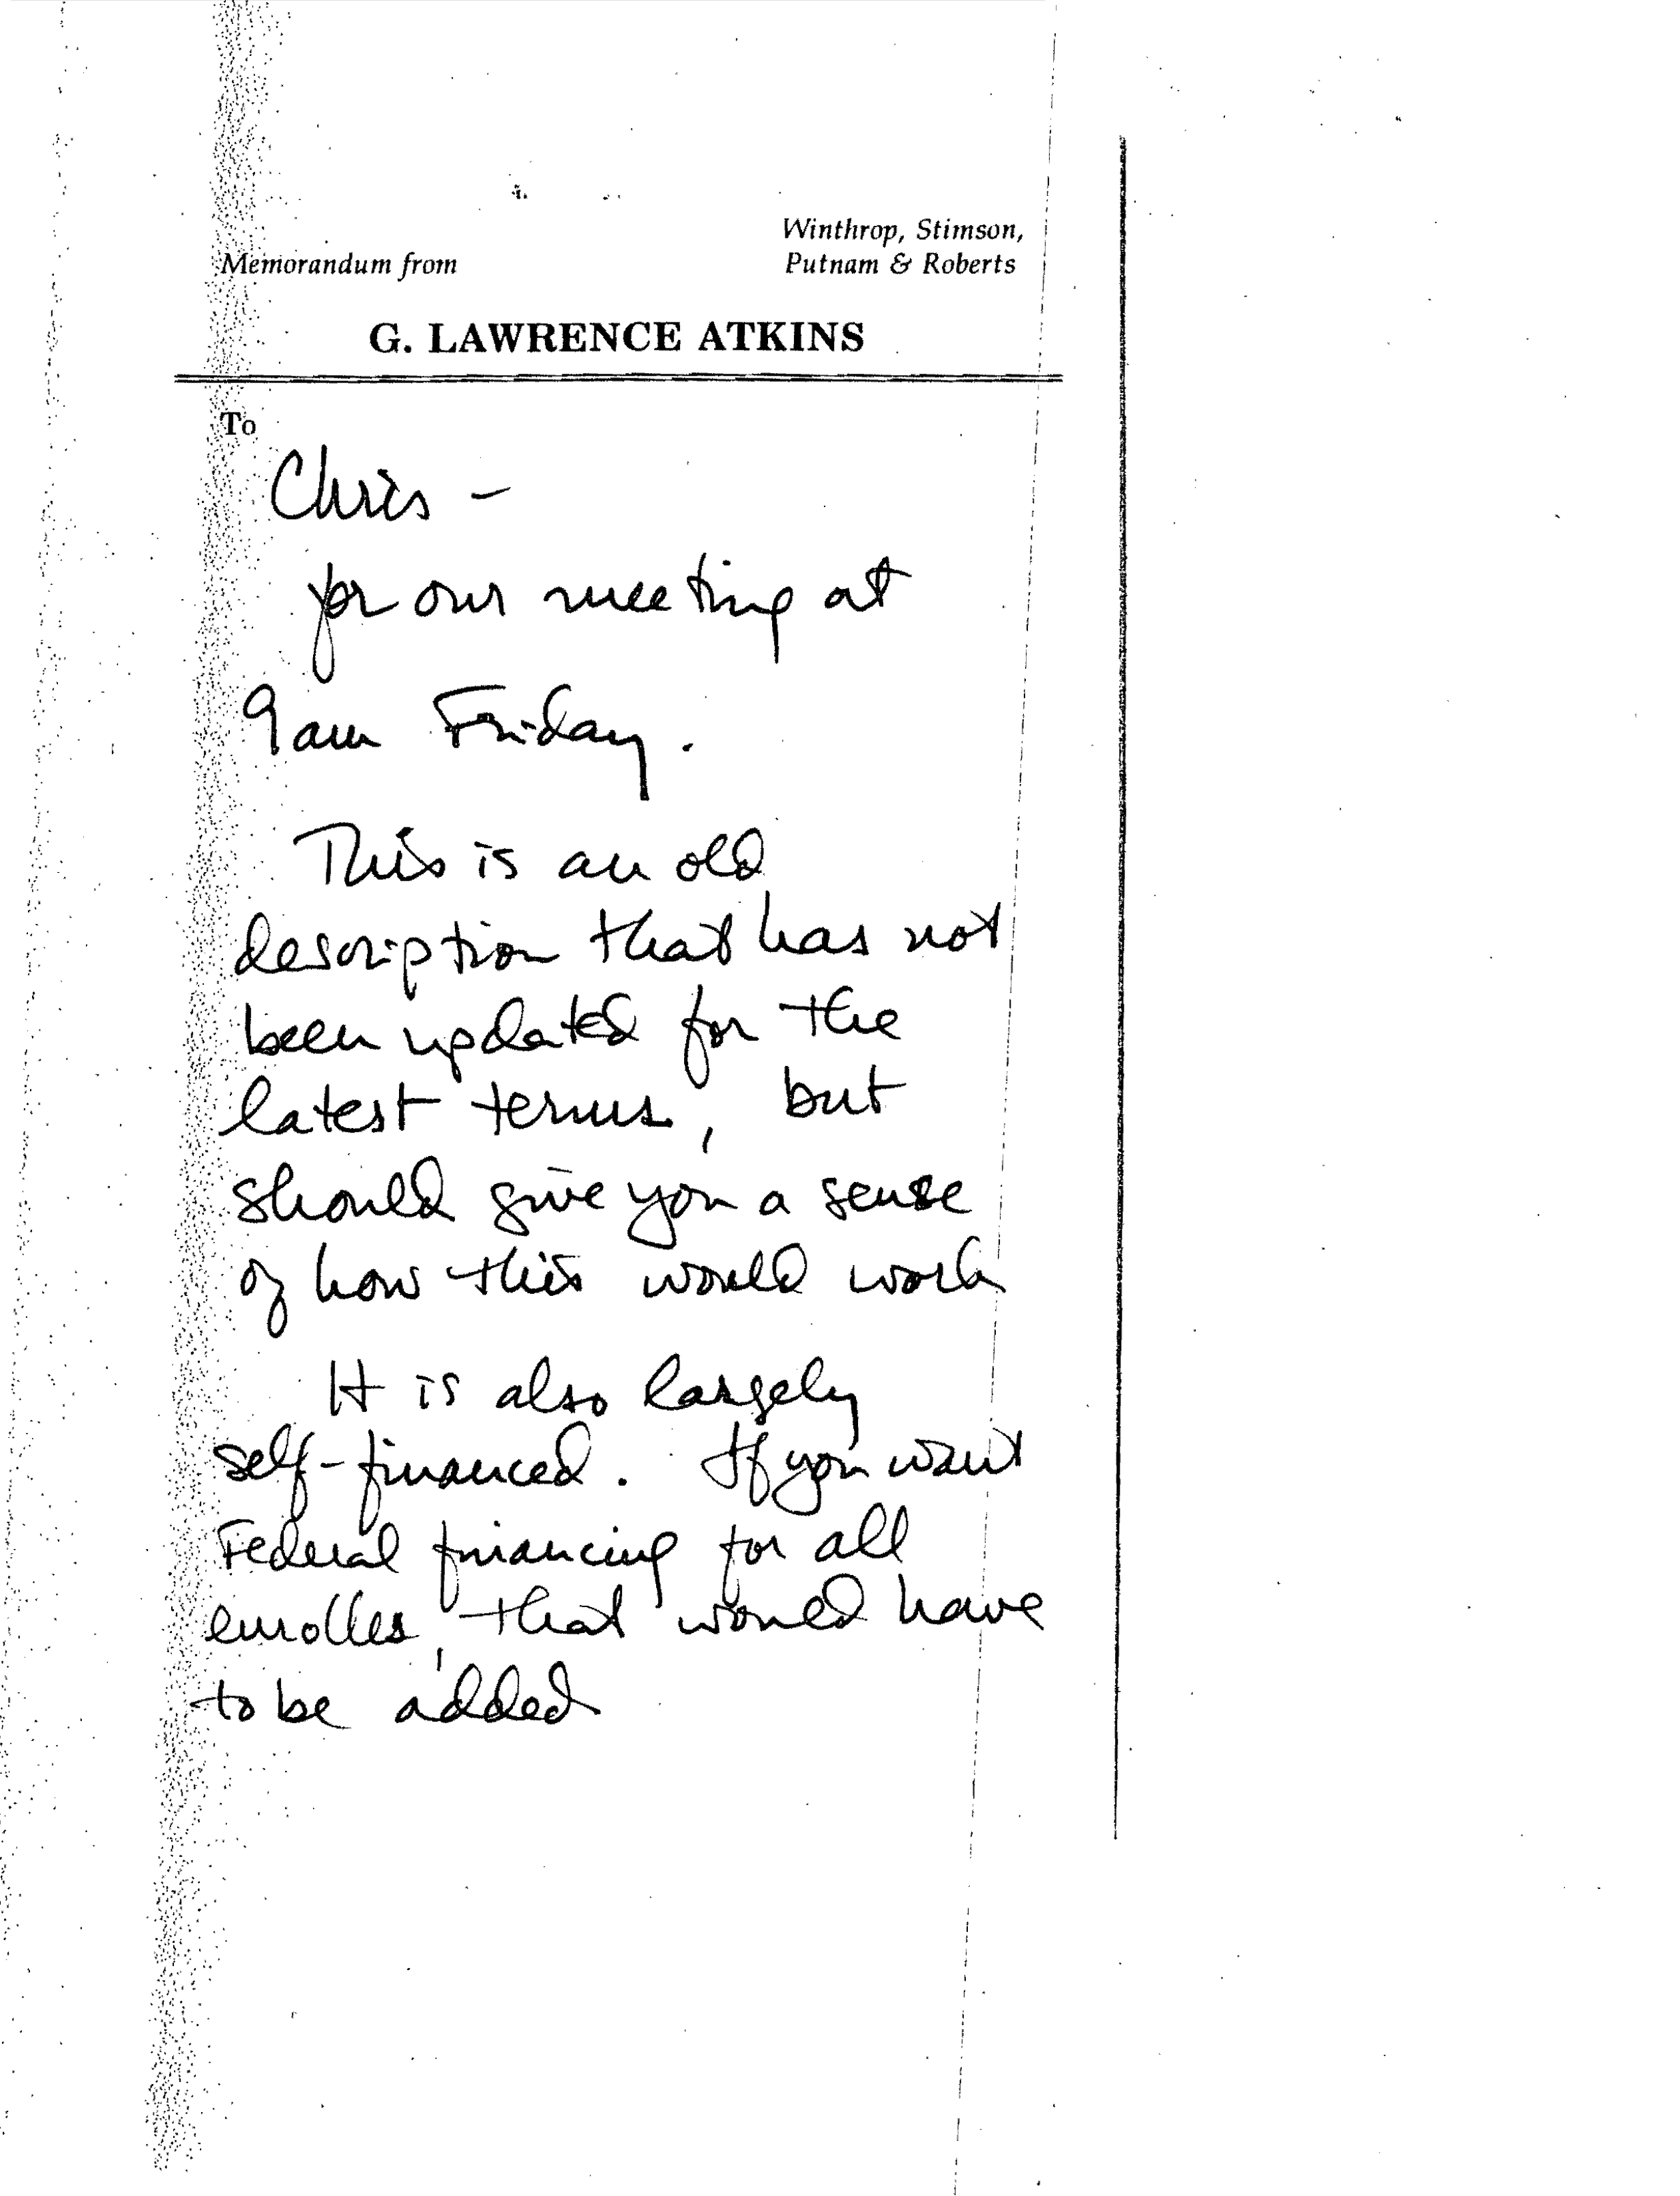 Winthrop, Stimson,
Memorandum from Putnam & Roberts
G. LAWRENCE ATKINS
To
Chris –
for our meeting at
9am Friday.
This is an old
description that has not
been updated for the
latest terms, but
should give you a sense
of how this would work
It is also largely
self-financed. If you want
Federal financing for all
enrolles, that would have
to be added